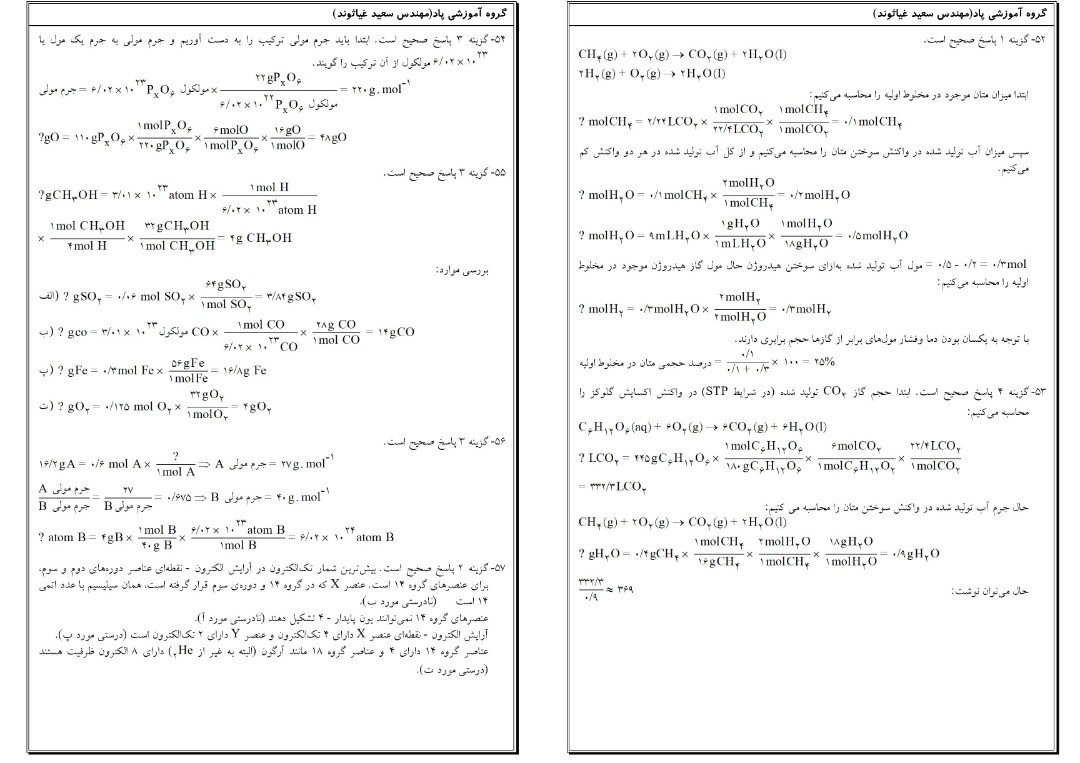 گروه آموزشی پاد(مهندس سعید غیاثوند)
۵۲- گزینه ۱ پاسخ صحیح است.
CH۴(g) + ۲O۲(g) → CO۲(g) + ۲H۲O(l)
۲H۲(g) + O۲(g) → ۲H۲O(l)
ابتدا میزان متان موجود در مخلوط اولیه را محاسبه می‌کنیم:
? molCH۴ = ۲/۲۴ LCO۲ × ۱molCO۲ / ۲۲/۴LCO۲ × ۱molCH۴ / ۱molCO۲ = ۰/۱molCH۴
سپس میزان آب تولید شده در واکنش سوختن متان را محاسبه می‌کنیم و از کل آب تولید شده در هر دو واکنش کم
می‌کنیم.
? molH۲O = ۰/۱molCH۴ × ۲molH۲O / ۱molCH۴ = ۰/۲molH۲O
? molH۲O = ۹mLH۲O × ۱gH۲O / ۱mLH۲O × ۱molH۲O / ۱۸gH۲O = ۰/۵molH۲O
۰/۵ - ۰/۲ = ۰/۳mol = مول آب تولید شده به‌ازای سوختن هیدروژن حال مول گاز هیدروژن موجود در مخلوط
اولیه را محاسبه می‌کنیم:
? molH۲ = ۰/۳molH۲O × ۲molH۲ / ۲molH۲O = ۰/۳molH۲
با توجه به یکسان بودن دما وفشار مول‌های برابر از گازها حجم برابری دارند.
درصد حجمی متان در مخلوط اولیه = ۰/۱ / ۰/۱ + ۰/۳ × ۱۰۰ = ۲۵%
۵۳- گزینه ۴ پاسخ صحیح است. ابتدا حجم گاز CO۲ تولید شده (در شرایط STP) در واکنش اکسایش گلوکز را
محاسبه می‌کنیم:
C۶H۱۲O۶(aq) + ۶O۲(g) → ۶CO۲(g) + ۶H۲O(l)
? LCO۲ = ۴۴۵gC۶H۱۲O۶ × ۱molC۶H۱۲O۶ / ۱۸۰gC۶H۱۲O۶ × ۶molCO۲ / ۱molC۶H۱۲O۲ × ۲۲/۴LCO۲ / ۱molCO۲
= ۳۳۲/۳LCO۲
حال جرم آب تولید شده در واکنش سوختن متان را محاسبه می کنیم:
CH۴(g) + ۲O۲(g) → CO۲(g) + ۲H۲O(l)
? gH۲O = ۰/۴gCH۴ × ۱molCH۴ / ۱۶gCH۴ × ۲molH۲O / ۱molCH۴ × ۱۸gH۲O / ۱molH۲O = ۰/۹gH۲O
حال می‌توان نوشت: ۳۳۲/۳ / ۰/۹ ≈ ۳۶۹
گروه آموزشی پاد(مهندس سعید غیاثوند)
۵۴- گزینه ۳ پاسخ صحیح است. ابتدا باید جرم مولی ترکیب را به دست آوریم و جرم مولی به جرم یک مول یا
۶/۰۲ × ۱۰^۲۳ مولکول از آن ترکیب را گویند.
جرم مولی = ۶/۰۲ × ۱۰^۲۳ PxO۶ مولکول × ۲۲gPxO۶ / ۶/۰۲ × ۱۰^۲۲ PxO۶ مولکول = ۲۲۰g.mol^-۱
?gO = ۱۱۰gPxO۶ × ۱molPxO۶ / ۲۲۰gPxO۶ × ۶molO / ۱molPxO۶ × ۱۶gO / ۱molO = ۴۸gO
۵۵- گزینه ۳ پاسخ صحیح است.
?gCH۳OH = ۳/۰۱ × ۱۰^۲۳ atom H × ۱mol H / ۶/۰۲ × ۱۰^۲۳ atom H
× ۱mol CH۳OH / ۴mol H × ۳۲gCH۳OH / ۱mol CH۳OH = ۴g CH۳OH
بررسی موارد:
الف) ? gSO۲ = ۰/۰۶ mol SO۲ × ۶۴gSO۲ / ۱mol SO۲ = ۳/۸۴gSO۲
ب) ? gco = ۳/۰۱ × ۱۰^۲۳ مولکول CO × ۱mol CO / ۶/۰۲ × ۱۰^۲۳ CO × ۲۸g CO / ۱mol CO = ۱۴gCO
پ) ? gFe = ۰/۳mol Fe × ۵۶gFe / ۱molFe = ۱۶/۸g Fe
ت) ? gO۲ = ۰/۱۲۵ mol O۲ × ۳۲gO۲ / ۱molO۲ = ۴gO۲
۵۶- گزینه ۳ پاسخ صحیح است.
۱۶/۲gA = ۰/۶ mol A × ? / ۱mol A ⇒ A جرم مولی = ۲۷g.mol^-۱
جرم مولی A / جرم مولی B = ۲۷ / جرم مولی B = ۰/۶۷۵ ⇒ B جرم مولی = ۴۰g.mol^-۱
? atom B = ۴gB × ۱mol B / ۴۰g B × ۶/۰۲ × ۱۰^۲۳ atom B / ۱mol B = ۶/۰۲ × ۱۰^۲۴ atom B
۵۷- گزینه ۲ پاسخ صحیح است. بیش‌ترین شمار تک‌الکترون در آرایش الکترون - نقطه‌ای عناصر دوره‌های دوم و سوم،
برای عنصرهای گروه ۱۴ است. عنصر X که در گروه ۱۴ و دوره‌ی سوم قرار گرفته است، همان سیلیسیم با عدد اتمی
۱۴ است (نادرستی مورد ب).
عنصرهای گروه ۱۴ نمی‌توانند یون پایدار - ۴ تشکیل دهند (نادرستی مورد آ).
آرایش الکترون - نقطه‌ای عنصر X دارای ۴ تک‌الکترون و عنصر Y دارای ۲ تک‌الکترون است (درستی مورد پ).
عناصر گروه ۱۴ دارای ۴ و عناصر گروه ۱۸ مانند آرگون (البته به غیر از ۲He) دارای ۸ الکترون ظرفیت هستند
(درستی مورد ت).